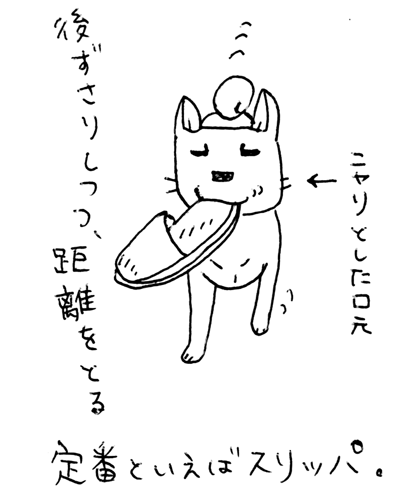 後ずさりしつつ、距離をとる
ニヤリとした口元
定番といえばスリッパ。